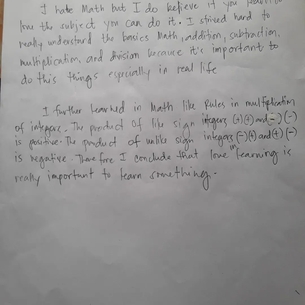 I hate Math but I do believe if you
love the subject you can do it. I strived hard to
really understand the basics Math, addition, subtraction,
multiplication, and division because it's important to
do this things especially in real life
I further learned in Math like Rules in multiplication
of integers. The product of like sign integers (+)(+) and (-)(-)
is positive. The product of unlike sign integers (-)(+) and (+)(-)
is negative. Therefore I conclude that love in learning is
really important to learn something.